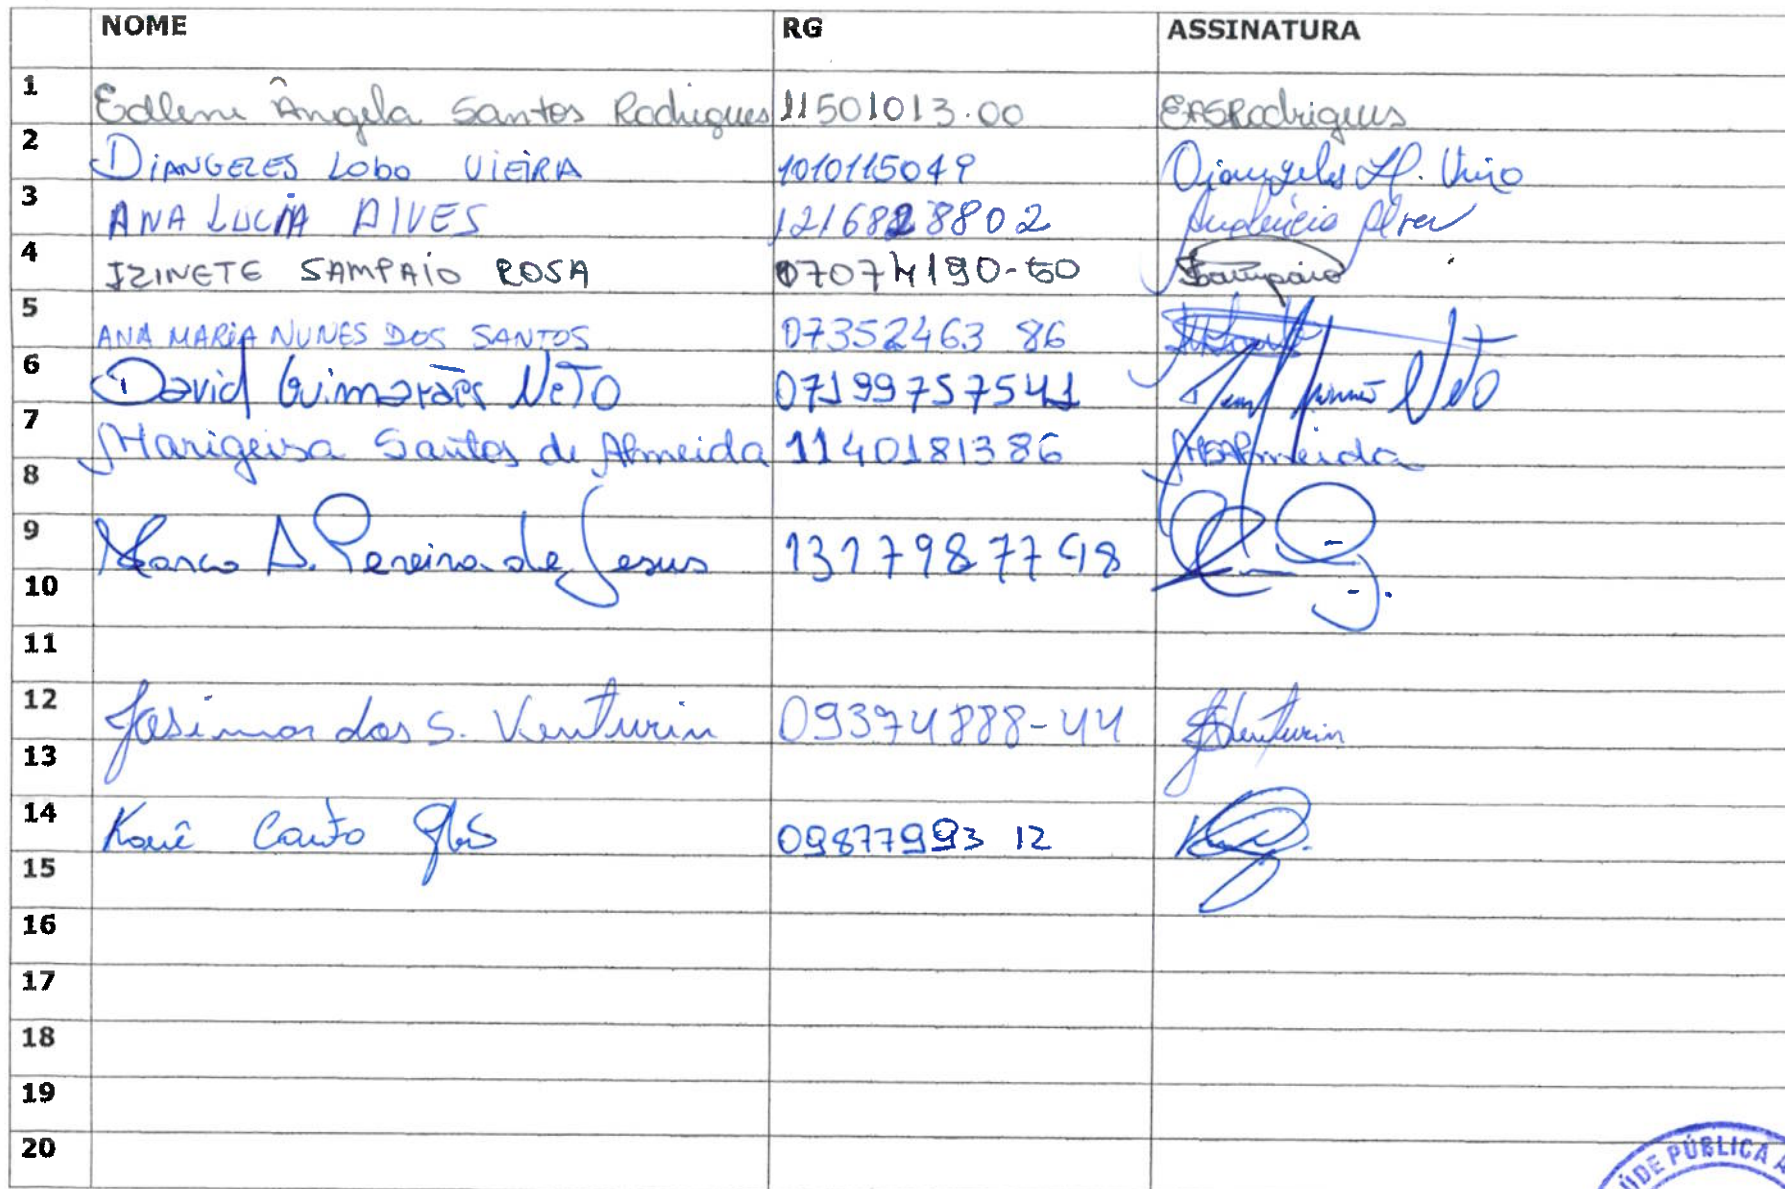 NOME RG ASSINATURA
1 Edlene Ângela Santos Rodrigues 11501013.00 EASRodrigues
2 DIANGELES Lobo VIEIRA 1010115049
3 ANA LUCIA ALVES 1216828802 Analúcia Alves
4 IZINETE SAMPAIO ROSA 07074190-50 Sampaio
5 ANA MARIA NUNES DOS SANTOS 07352463 86
6 David Guimarães NETO 07199757541 Neto
7 Marigeusa Santos de Almeida 1140181386 MSAlmeida
8
9 Marco A. Pereira de Jesus 1317987798
10
11
12 Josimar dos S. Venturin 09374888-44 JSVenturin
13
14 Kauê Couto 09877993 12
15
16
17
18
19
20
ÚDE PÚBLICA A